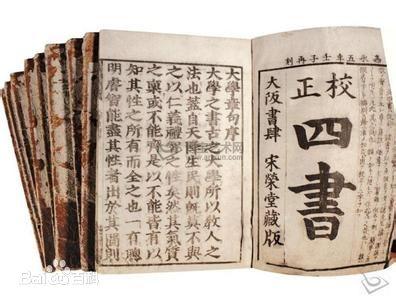 嘉永五年壬子再刻
校正
四書
大阪書肆 宋榮堂藏版
大學章句序
大學之書古之大學所以教人之
法也蓋自天降生民則既莫不與
之以仁義禮智之性矣然其氣質
之稟或不能齊是以不能皆有以
知其性之所有而全之也一有聰
明睿智能盡其性者出於其閒則
Bai百科